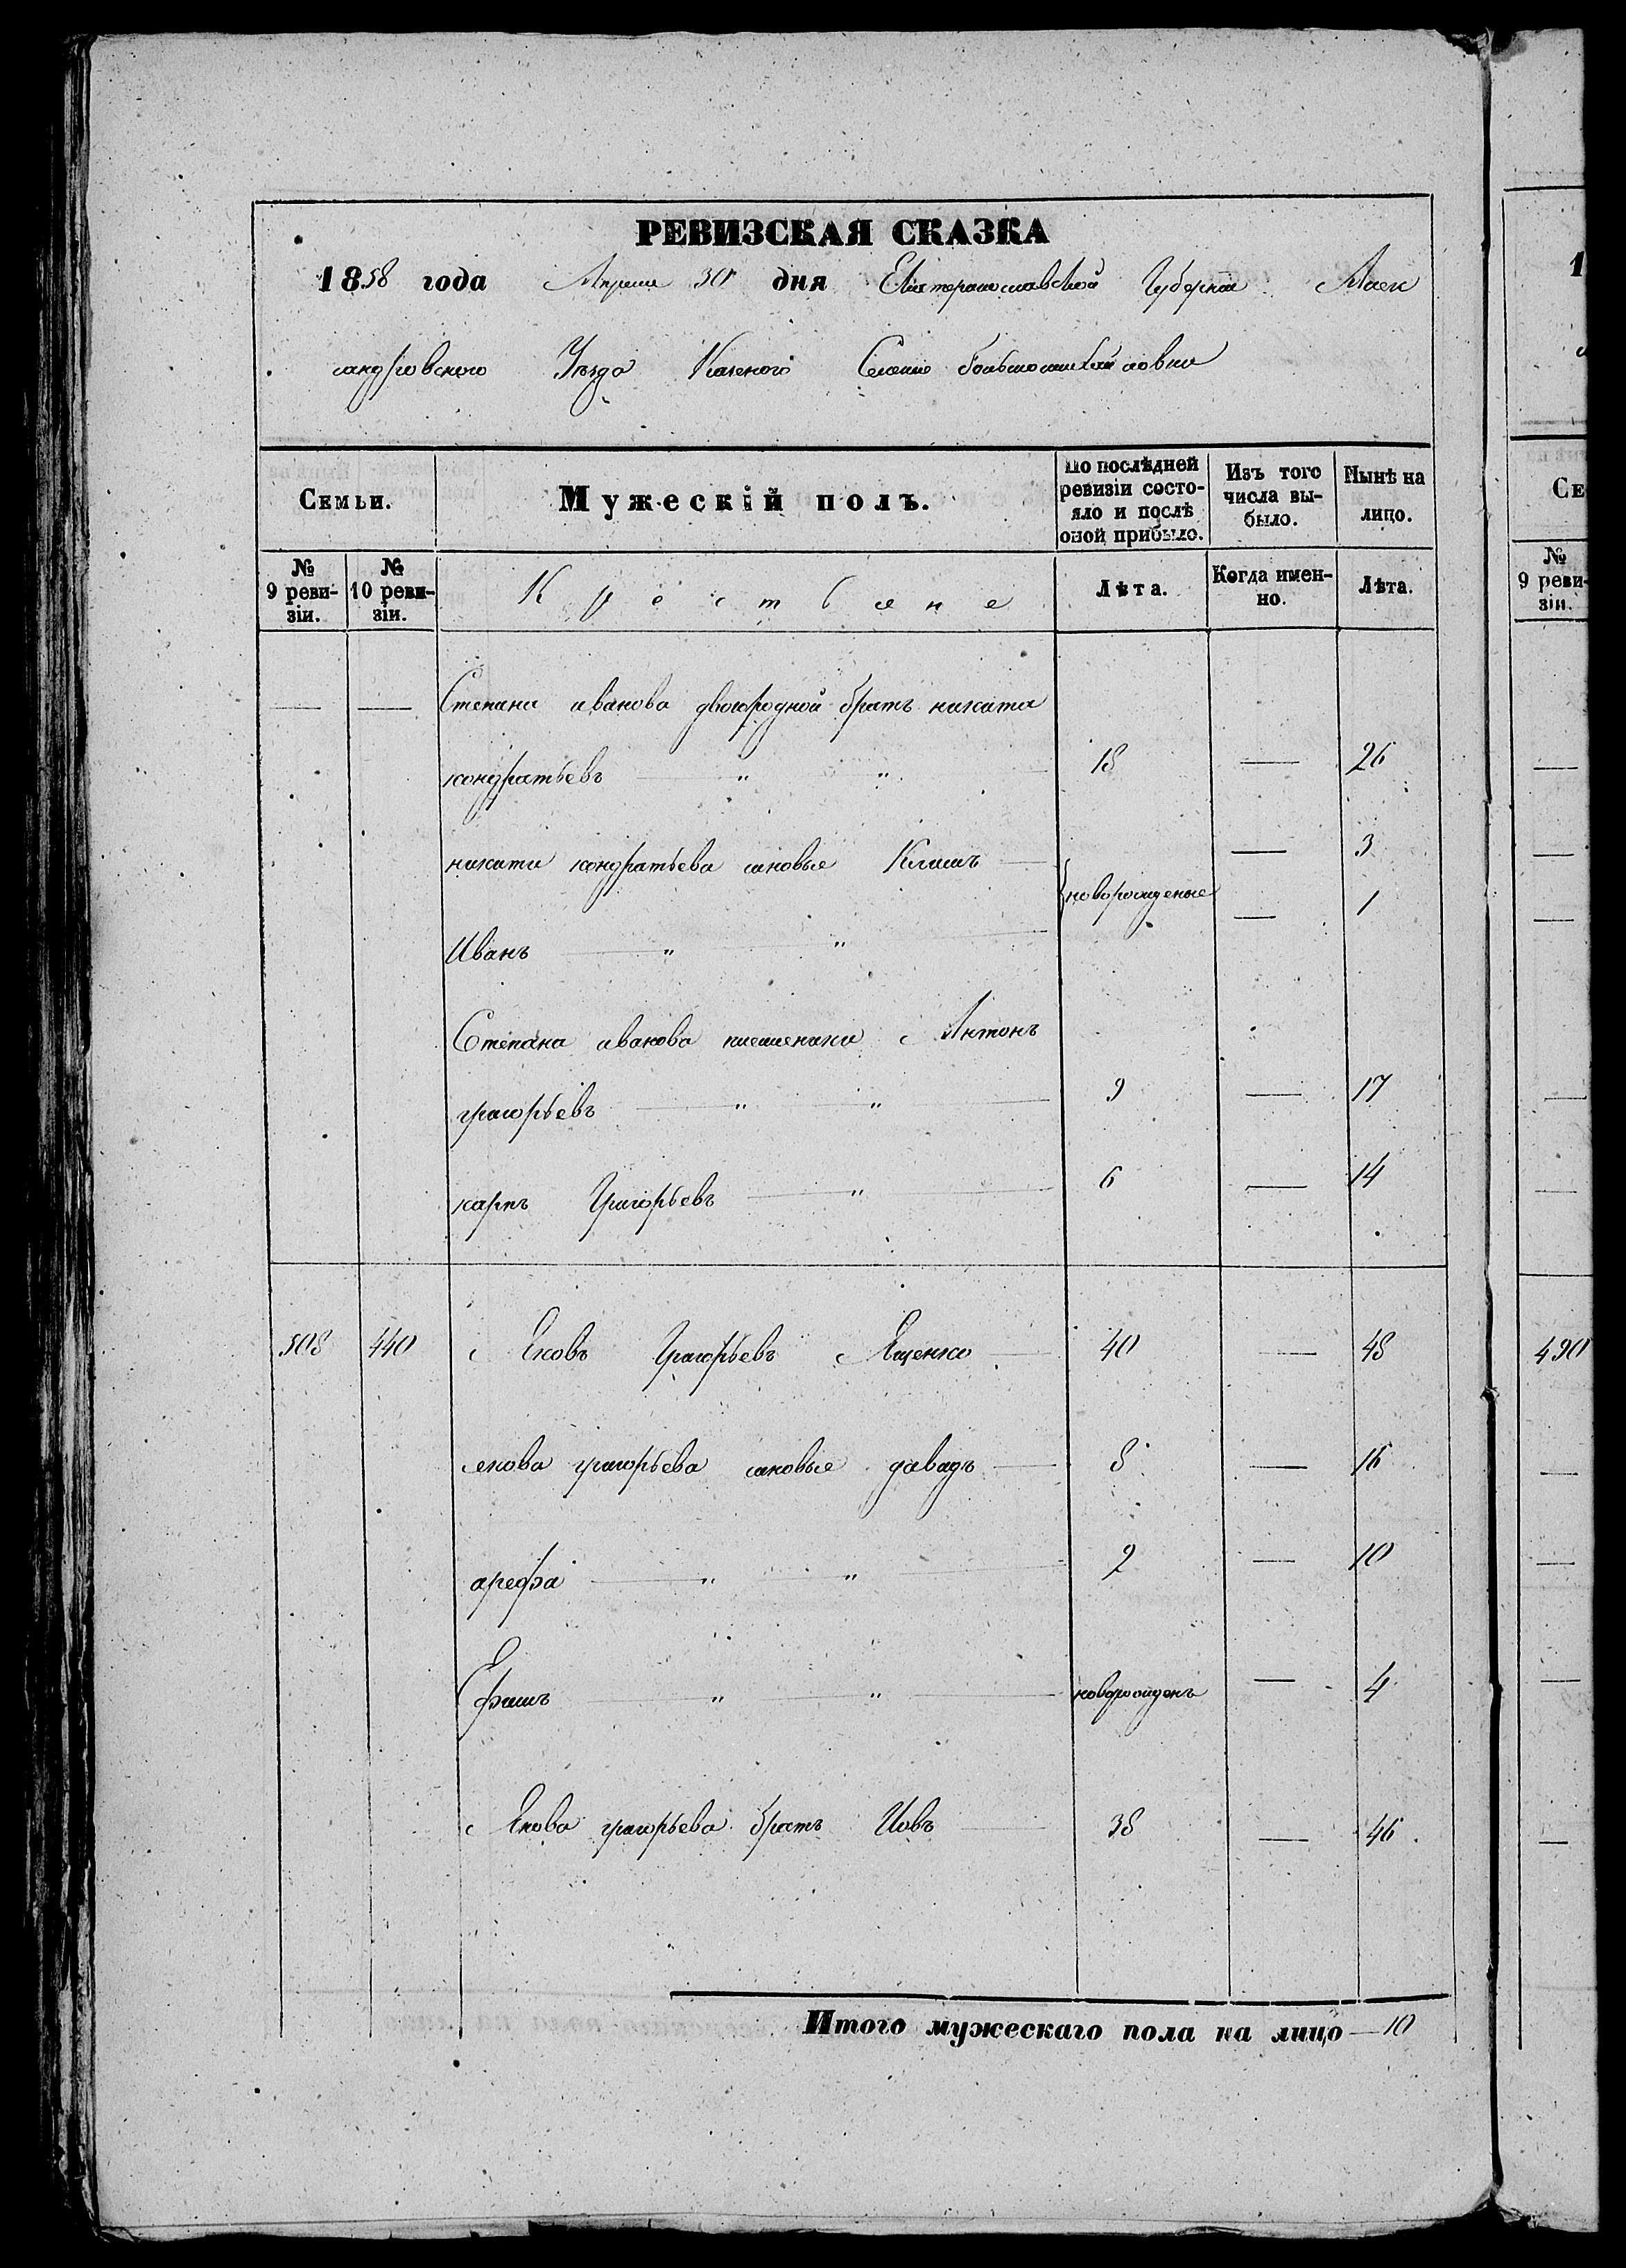 РЕВИЗСКАЯ СКАЗКА
1858 года Апреля 30 дня Екатеринославской Губернии Алек
сандровского Уезда Казеного Селения большомихайловки
Семьи. Мужескій полъ. По послѣдней ревизіи состо-яло и послѣ оной прибыло. Изъ того числа вы-было. Нынѣ на лицо.
№ 9 реви-зіи. № 10 реви-зіи. Крестьяне Лѣта. Когда имен-но. Лѣта.
— — Степана иванова двоюродной братъ никита
кондратьевъ — " " 18 — 26
никиты кондратьева сыновья Климъ — новорожденые — 3
Иванъ — " " — 1
Степана иванова племяники Антонъ
григорьевъ — " " 9 — 17
карпъ Григорьевъ — " 6 — 14
508 440 Яковъ Григорьевъ Яценко 40 — 48
якова григорьева сыновья давидъ — 8 — 16
арефа — " " 2 — 10
Ефимъ — " " новорожденъ — 4
Якова григорьева братъ Иовъ 38 — 46
Итого мужескаго пола на лицо — 10
1
Се
№ 9 реви-зіи.
490